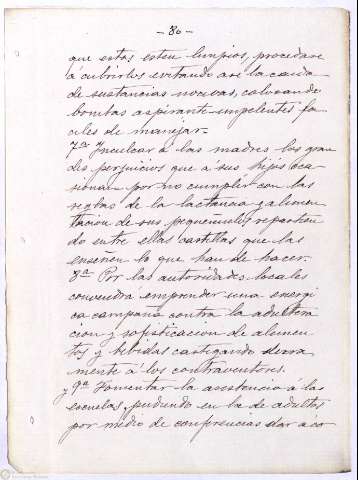 - 80 -
que estos esten limpios, procedase
á cubrirlos evitando asi la caida
de sustancias nocivas, colocando
bombas aspirante impelentes fa
ciles de manejar.-
7ª Inculcar á las madres los gran
des perjuicios que á sus hijos oca
sionan por no cumplir con las
reglas de la lactancia y alimen
tacion de sus pequeñuelos repartien
do entre ellas cartillas que las
enseñen lo que han de hacer.-
8ª Por las autoridades locales
convendra emprender una energi
ca campaña contra la adultera
cion y sofisticacion de alimen
tos y bebidas castigando severa
mente á los contraventores.
y 9ª Fomentar la asistencia á las
escuelas, pudiendo en las de adultos
por medio de conferencias dar a co